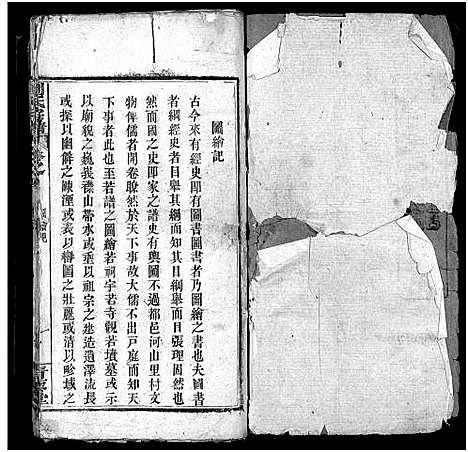 圖繪記
古今來有經史即有圖書圖書者乃圖繪之書也夫圖書
者綱經史者目舉其綱而知其目綱舉而目張理固然也
然而國之史即家之譜史有輿圖不過都邑河山里村文
物俾儒者開卷瞭然於天下事故大儒不出戶庭而知天
下事者此也至若譜之圖繪若祠宇若寺觀若墳墓或示
以廟貌之巍峩襟山帶水或垂以祖宗之建造遺澤流長
或採以幽僻之陳湮或表以疇圖之壯麗或清以畛域之
圖繪記